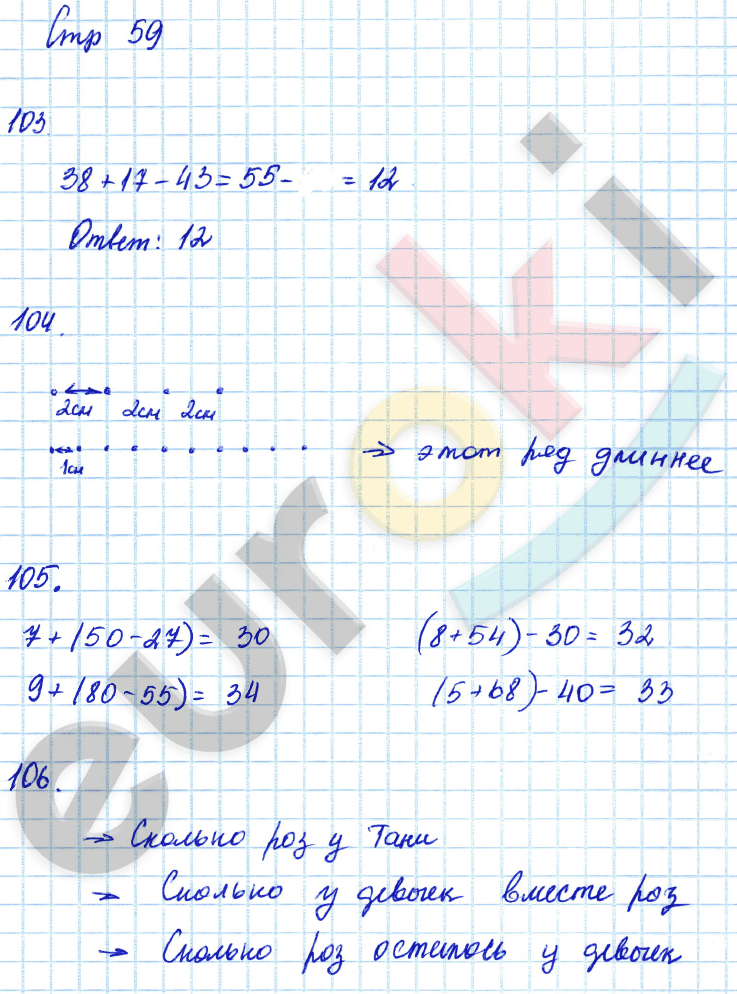 Стр 59
103
38+17-43=55-   =12
Ответ: 12
104.
2см 2см 2см
1см
→ этот ряд длиннее
105.
7+(50-27)= 30 (8+54)-30= 32
9+(80-55)= 34 (5+68)-40= 33
106.
→ Сколько роз у Тани
→ Сколько у девочек вместе роз
→ Сколько роз осталось у девочек
euroki